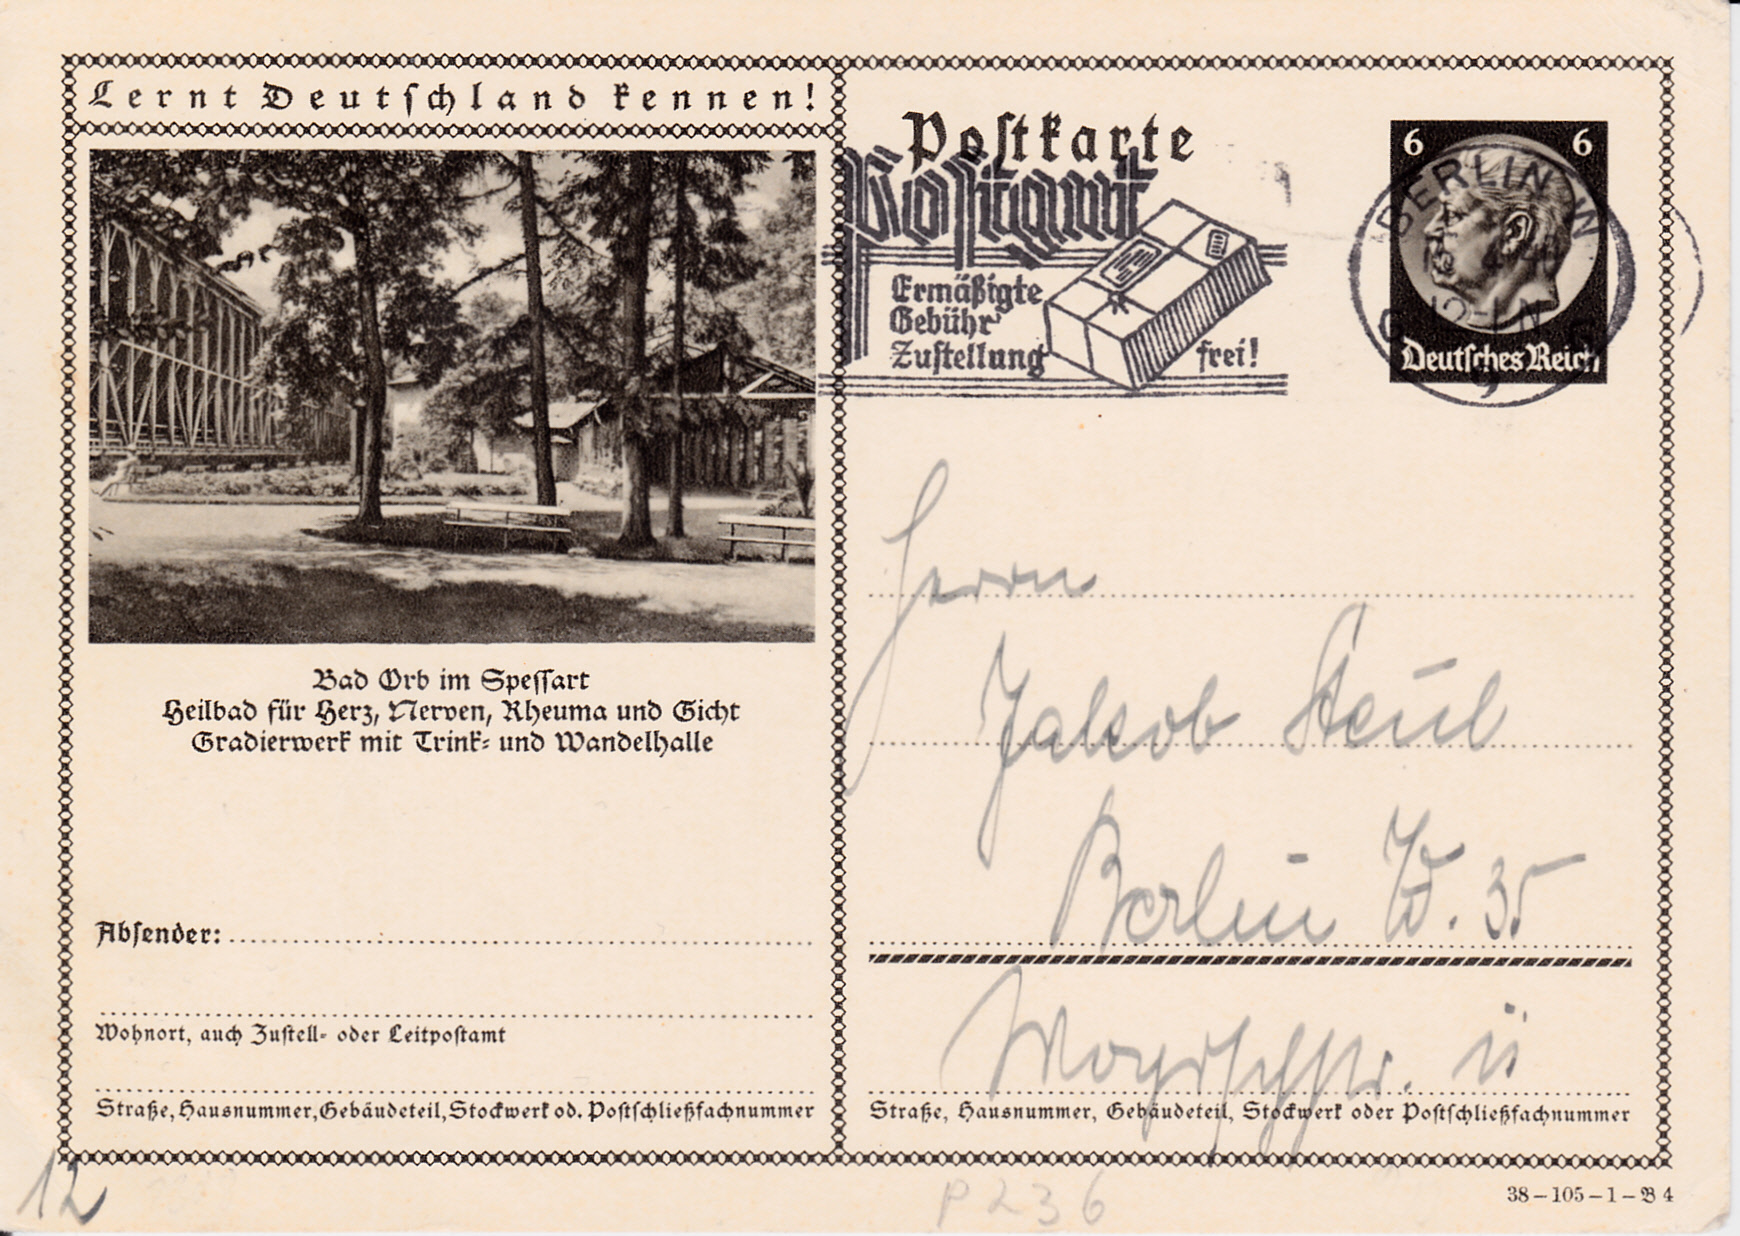 Lernt Deutschland kennen!
Bad Orb im Spessart
Heilbad für Herz, Nerven, Rheuma und Gicht
Gradierwerk mit Trink- und Wandelhalle
Absender:
Wohnort, auch Zustell- oder Leitpostamt
Straße, Hausnummer, Gebäudeteil, Stockwerk od. Postschließfachnummer
12
Postkarte
Postgut
Ermäßigte
Gebühr
Zustellung frei!
6 6
BERLIN W
9
Deutsches Reich
Herrn
Jakob
Berlin W. 35
Straße, Hausnummer, Gebäudeteil, Stockwerk oder Postschließfachnummer
P 236
38-105-1-B 4